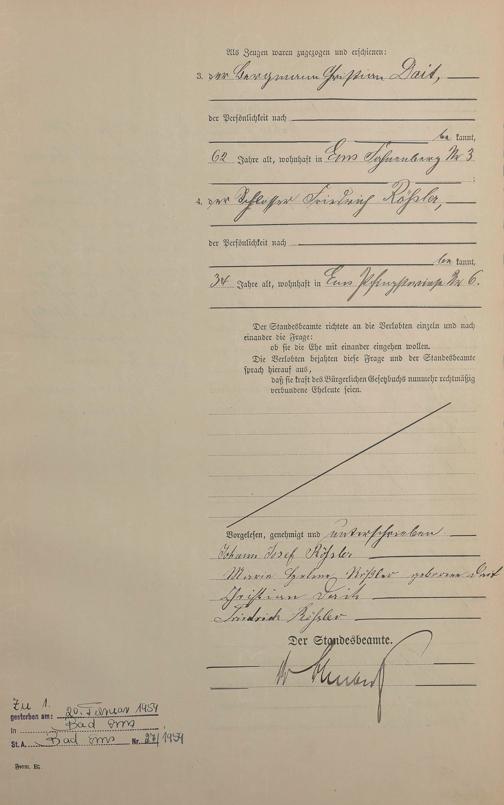 Als Zeugen waren zugezogen und erschienen:
3. der Bergmann Christian Dait,
der Persönlichkeit nach
be kannt,
62 Jahre alt, wohnhaft in Ems Nr 3
4. der Schlosser Friedrich Rößler,
der Persönlichkeit nach
be kannt,
34 Jahre alt, wohnhaft in Ems Nr 6.
Der Standesbeamte richtete an die Verlobten einzeln und nach
einander die Frage:
ob sie die Ehe mit einander eingehen wollen.
Die Verlobten bejahten diese Frage und der Standesbeamte
sprach hierauf aus,
daß sie kraft des Bürgerlichen Gesetzbuchs nunmehr rechtmäßig
verbundene Eheleute seien.
Vorgelesen, genehmigt und unterschrieben
Johann Josef Rößler
Maria Rößler geborene Dait
Christian Dait
Friedrich Rößler
Der Standesbeamte.
Zu 1.
gestorben am: 20. Februar 1954
in Bad Ems
St. A. Bad Ems Nr. 27/1954
Form. Ec.